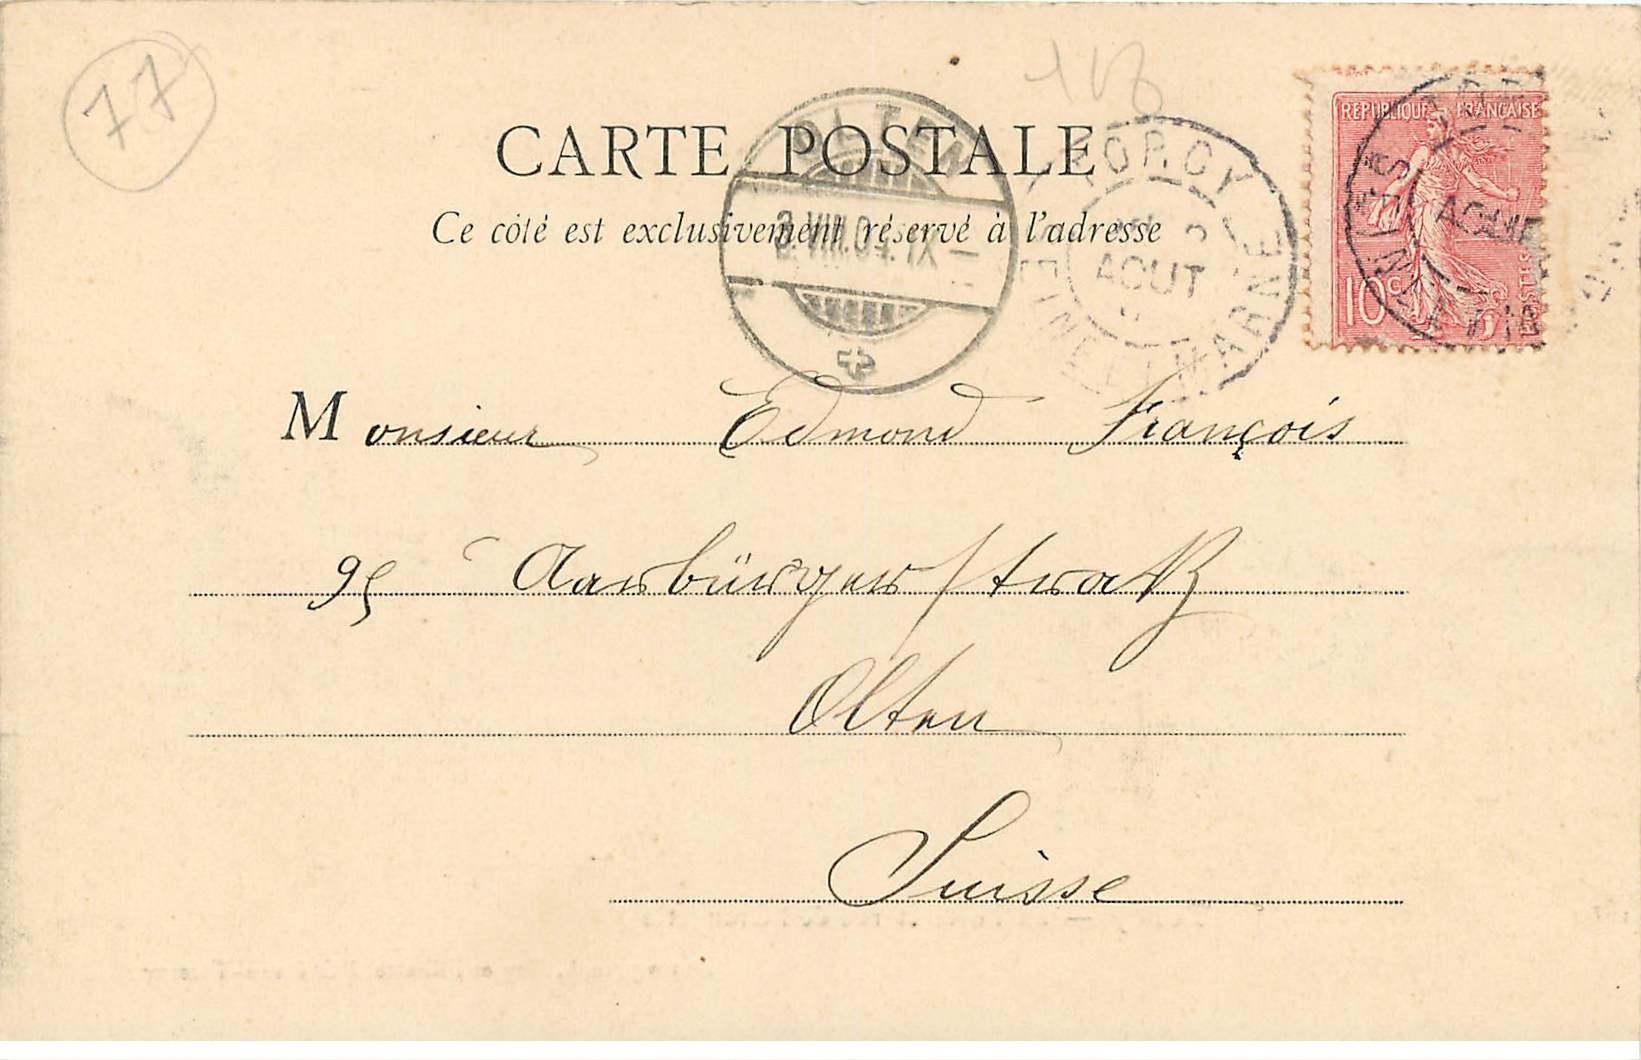 77
CARTE POSTALE
Ce côté est exclusivement réservé à l'adresse
REPUBLIQUE FRANÇAISE
10c POSTES
OLTEN
3.VIII.04.IX
TORCY
AOUT
SEINE ET MARNE
Monsieur Edmond François
95 Aarbürgerstraße
Olten
Suisse